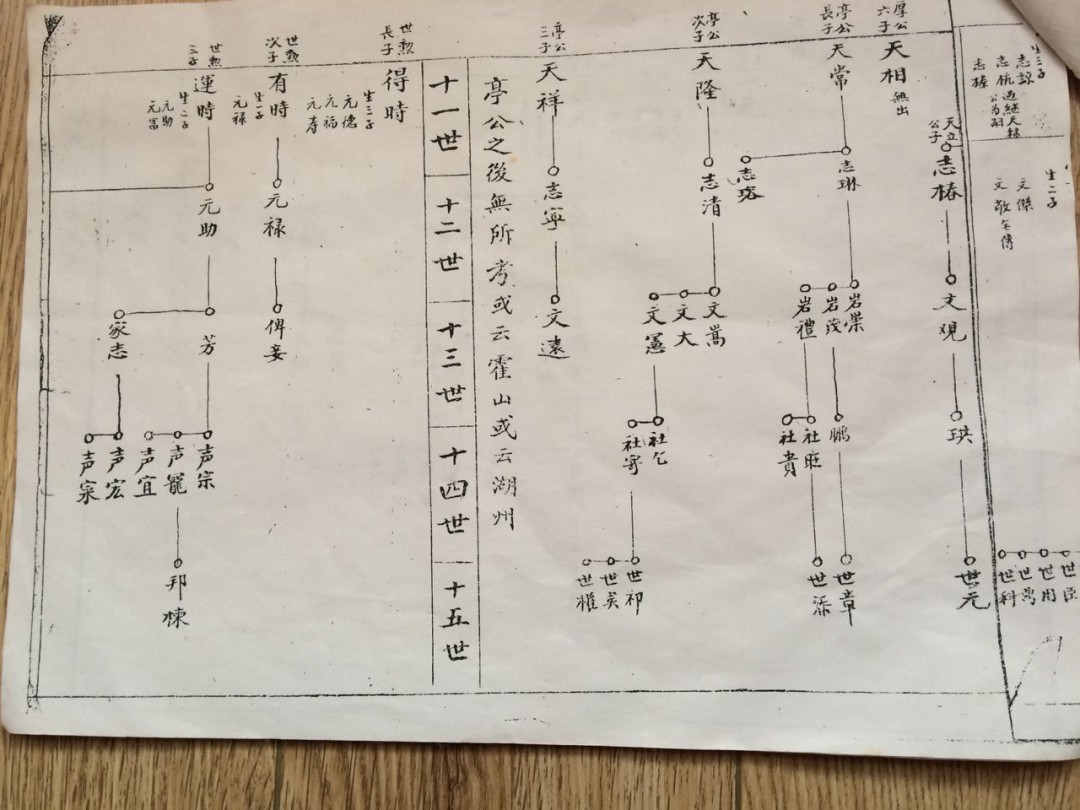 生三子
志諒
志侃 過繼天祿公為嗣
志榛
生二子
文傑
文敬 乏傳
世臣
世用
世萬
世科
厚公六子
天相 無出
天立公子
志椿
文觀
珙
世元
亭公長子
天常
志琳
志珞
岩崇
岩茂
岩禮
鵬
社旺
社貴
世章
世添
亭公次子
天隆
志清
文嵩
文大
文憲
社乞
社寄
世祁
世奐
世權
亭公三子
天祥
志寧
文遠
亭公之後無所考或云霍山或云湖州
十一世
十二世
十三世
十四世
十五世
世勲長子
得時
生三子
元德
元福
元寿
世勲次子
有時
生一子
元禄
元禄
俾妾
世勲三子
運時
生二子
元助
元富
元助
芳
家志
声宗
声寵
声宜
声宏
声寀
邦棟